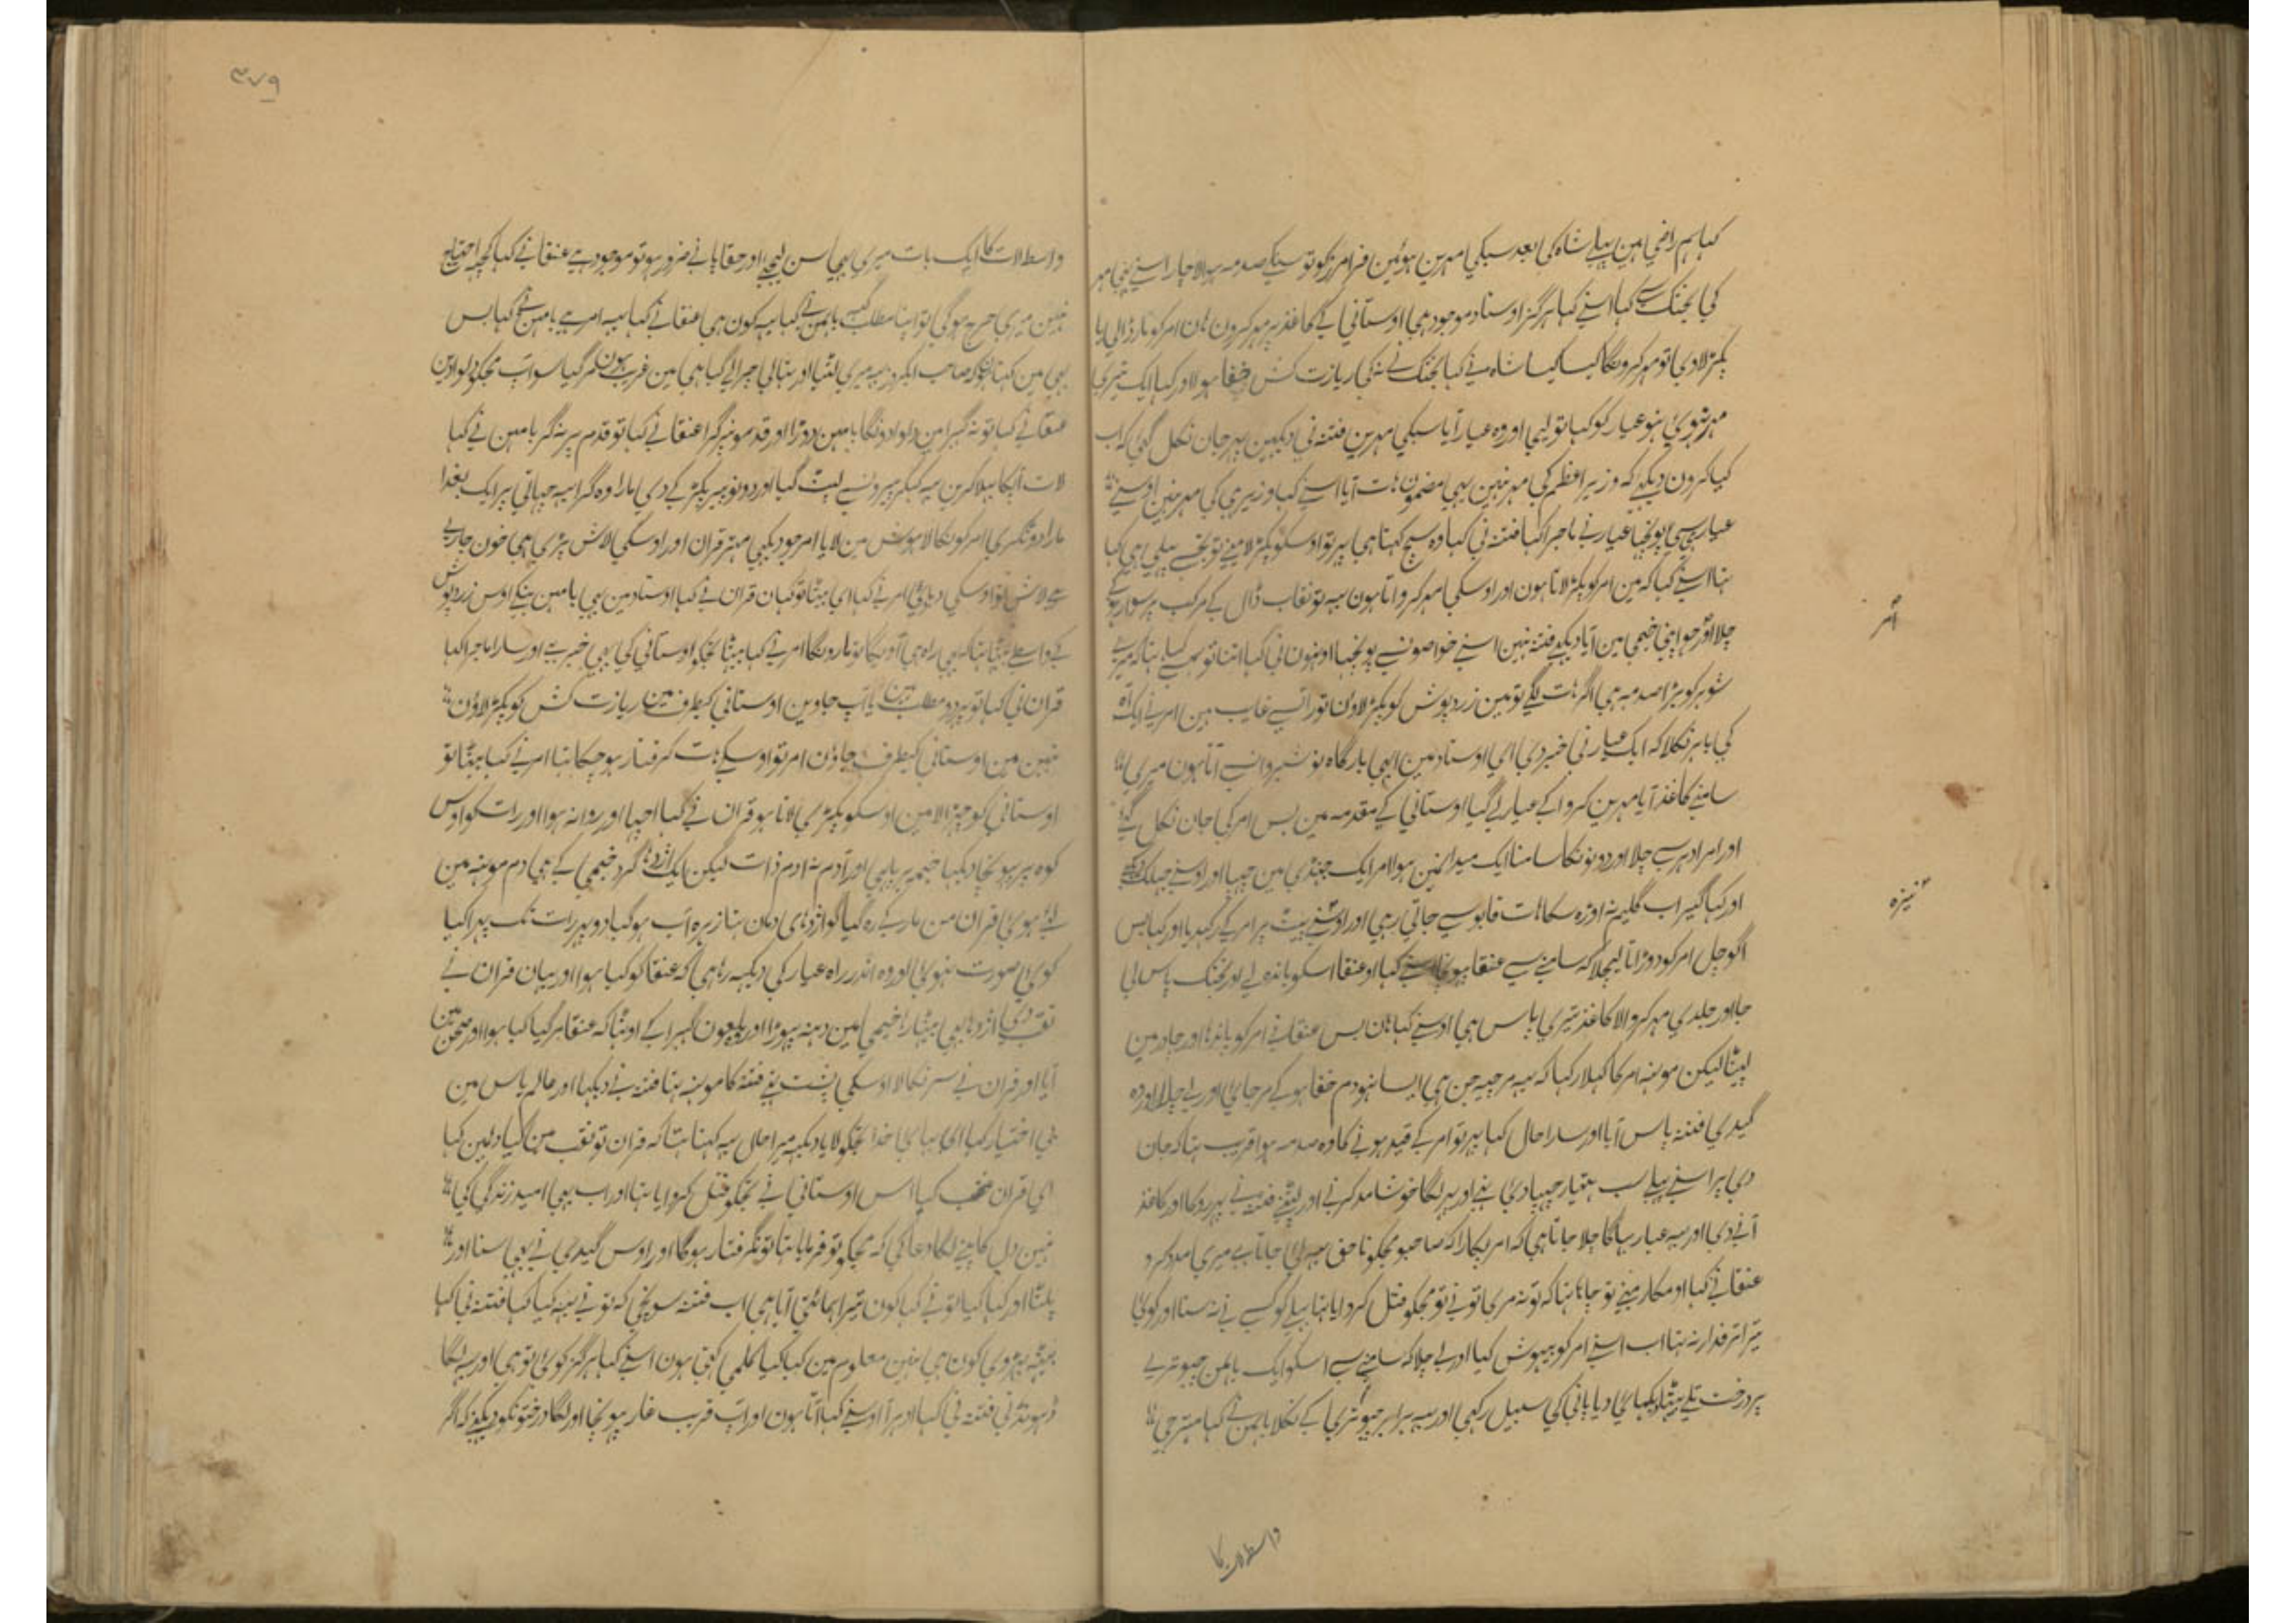 کہا ہم راضی ہین پہلے شاہ کی بعد سبکی مہرین ہوئین فرامرز کو تو سبکے صدمہ پہلا چار اسنے بھی مہر
کی بختک سے کہا اسنے کہا ہرگز اوستاد موجود ہی اوستانی کے کاغذ پر مہر کرون ہان امر کو مار ڈالی یا
پکڑ لا دی تو مہر کرونگا کیسا کیسا شاہ نے کہا بختک نے نکی ریازت کش خفا ہولا اور کہا ایک تیری
مہر نہوئی نہو عیار کو کہا تو لیجا اور وہ عیار آیا سبکی مہرین فتنہ نی دیکہین پہر جان نکل گئی کہ اب
کیا کرون دیکہے کہ وزیر اعظم کی مہر نہین یہی مضمون ہات آیا اسنے کہا وزیر ہی کی مہر نہین اوسنے
عیار سے پونچہا عیار نے ماجرا کہا فتنہ نی کہا وہ سچ کہتا ہی پہر تو اوسکو پکڑ لا مینے تو تجھسے پہلی ہی کہا
تہا اسنے کہا کہ مین امر کو پکڑ لاتا ہون اور اوسکی مہر کرواتا ہون یہہ تو نقاب ڈال کے مرکب پر سوار ہو کے
چلا اور جو اپنی خیمی مین آیا دیکہے فتنہ نہین اسنے خواصونسے پونچہا اونہون نی کہا اتنا تو ہمسے کہا تہا کہ میرے
شوہر کو بڑا صدمہ ہی اگر ہات لگے تو مین زرد پوش کو پکڑ لاؤن تو راتسے غایب ہین امر نے ایک آہ
کی باہر نکلا کہ ایک عیار نی خبر دی ای اوستاد مین ابھی بارگاہ نوشیروانسے آتا ہون میری
سامنے کاغذ آیا مہرین کروا کے عیار لے گیا اوستانی کے مقدمہ مین بس امر کی جان نکل گئی
اور امر ادہر سے چلا اور دونونکا سامنا ایک میدانمین ہوا امر ایک جہنڈی مین چہپا اور اوسنے جہلک دیکہی
اور کہا گیر اب گلیم نہ اوڑہ سکا ہات قابو سے جاتی رہی اور اوسنے پیٹ پر امر کے رکہدیا اور کہا بس
آگو چل امر کو دوڑاتا لیچلا کہ سامنے سے عنقا پہونچا اسنے کہا او عنقا اسکو باندہ لے اور بختک پاس لی
جا اور جلدی مہر کروا لا کاغذ تیری پاس ہی اوسنے کہا ہان بس عنقا نے امر کو باندہا اور چادر مین
لپیٹا لیکن مونہہ امر کا کہلا رکہا کہ یہہ مرچیہ جن ہی ایسا نہو دم خفا ہو کے مر جائے اور لے چلا اور وہ
گیدی فتنہ پاس آیا اور سارا حال کہا پہر تو امر کے قید ہونے کا وہ صدمہ ہوا قریب تہا کہ جان
دی پر اسنے پہلے سب ہتیار چہپا دئی تہے اور پہر لگا خوشامد کرنے اور لپٹنے فتنہ نے پہر روکا اور کاغذ
آنے دی اور یہہ عیار بہاگا چلا جاتا ہی کہ امر پکارا کہ صاحبو مجکو ناحق یہہ لئی جاتا ہے میری مدد کرو
عنقا نے کہا او مکار مینے تو جانا تہا کہ تو نہ مری تو نے تو مجکو قتل کروایا تہا پہلے کو کسے نے نہ سنا اور کوئی
تیرا ترفدار نہ تہا اب اسنے امر کو بیہوش کیا اور لے چلا کہ سامنے سے اسکو ایک باہمن چبوتریے
پر درخت تلے بیٹھا دیکہائی دیا پانی کی سبیل رکھی اور یہہ برابر چبوتری کے نکلا باہمن نے کہا مہتر جی
امر
نیزہ
واسطہ لات کا
۳۷۹
واسطہ لات کا ایک بات میری بھی سن لیجے اور حقا پانے ضرور ہو تو موجود ہے عنقا نے کہا کچہہ احتیاج
نہین میری حرج ہو گی تو اپنا مطلب کہہ باہمن نے کہا یہ کون ہی عنقا نے کہا یہہ امر ہے بامہن نے کہا بس
یہی مین کہتا تہا کہ صاحب ایکروز یہہ میری لٹیا اور تہالی چرا لے گیا ہی مین غریب ہون مر گیا سو آب مجکو دلوا دین
عنقا نے کہا تو نہ گہبرا مین دلوا دونگا بامہن دوڑا اور قدمونپر گرا عنقا نے کہا تو قدم پر نہ گر بامہن نے کہا
لات آپکا بہلا کرین یہہ کہکر پیرونسے لپٹ گیا اور دونو پیر پکڑ کے دی مارا وہ گرا یہہ چہاتی پر ایک بغدا
مارا دو ٹکڑی امر کو نکالا ہوش مین لایا امر جو دیکہی مہتر قران اور اوسکی لاش پڑی ہی خون جاری
ہے لاش تو اوسکی دبا دی امر نے کہا ای بیٹا تو کہان قران نے کہا اوستاد مین یہی بامہن بنکے اوس زرد پوش
کے واسطے بیٹھا تہا کہ اسی راہ ہی آویگا تو مارونگا امر نے کہا بیٹا تجکو اوستانی کی بھی خبر ہے اور سارا ماجرا کہا
قران نی کہا تو یہہ دو مطلب ہین یا آپ جاوین اوستانی کیطرف مین ریازت کش کو پکڑ لاؤن
نہین مین اوستانی کیطرف جاؤن امر تو اوسکے ہات گرفتار ہو چکا تہا امر نے کہا بیٹا تو
اوستانی کو چہڑا لا مین اوسکو پکڑ لی لاتا ہو قران نے کہا اچہا اور روانہ ہوا اور رات کو اوس
کوہ پر پہونچا دیکہا خیمہ پر پا ہی اور آدم نہ آدم ذات لیکن ایک اژدہا گرد خیمی کے ہی دم مونہہ مین
لئے ہوئی قران من مار کے رہ گیا گو اژدہای دمان تہا زہرہ آب ہو گیا دو پہر رات تک پہرا کیا
کوئی صورت نہوئی اور وہ اندر راہ عیار کی دیکہہ رہا ہی کہ عنقا کو کیا ہوا اور یہان قران نے
نقب دی اژدہا یہی بیٹہا رہا خیمی مین دہنہ پہوڑا اور ملعون گہبرا کے اوٹہا کہ عنقا مر گیا کیا ہوا اور صحن مین
آیا اور قران نے سر نکالا اوسکی پشت تہے فتنہ کا مونہہ تہا فتنہ نے دیکہا اور عالم یاس مین
نی اختیار کہا ای بہائی خدا تجکو لایا دیکہہ میرا حال یہہ کہنا تہا کہ قران تو نقب مین گیا دلمین کہا
ای قران غضب کیا اس اوستانی نے تجکو قتل کروایا تہا اور اب بھی امید زندگی کی
نہین دل کانپنے لگا دعا کی کہ مجکو تو فرمایا تہا تو نگرفتار ہوگا اور اوس گیدی نے بھی سنا اور
پلٹا اور کہا کیا تو نے کہا کون تیرا بہائی آیا ہی اب فتنہ سونچی کہ تو نے یہہ کیا کہا فتنہ نی کہا
کون ہی نہین معلوم مین کیا کیا کلمی کہتی ہون اسنے کہا ہرگز کوئی تو ہی اور یہہ لگا
ڈہونڈنی فتنہ نی کہا ادہر آ اوسنے کہا آتا ہون اور آپ قریب غار پہونچا اور لگا درختونکو دیکہنے کہ اگر